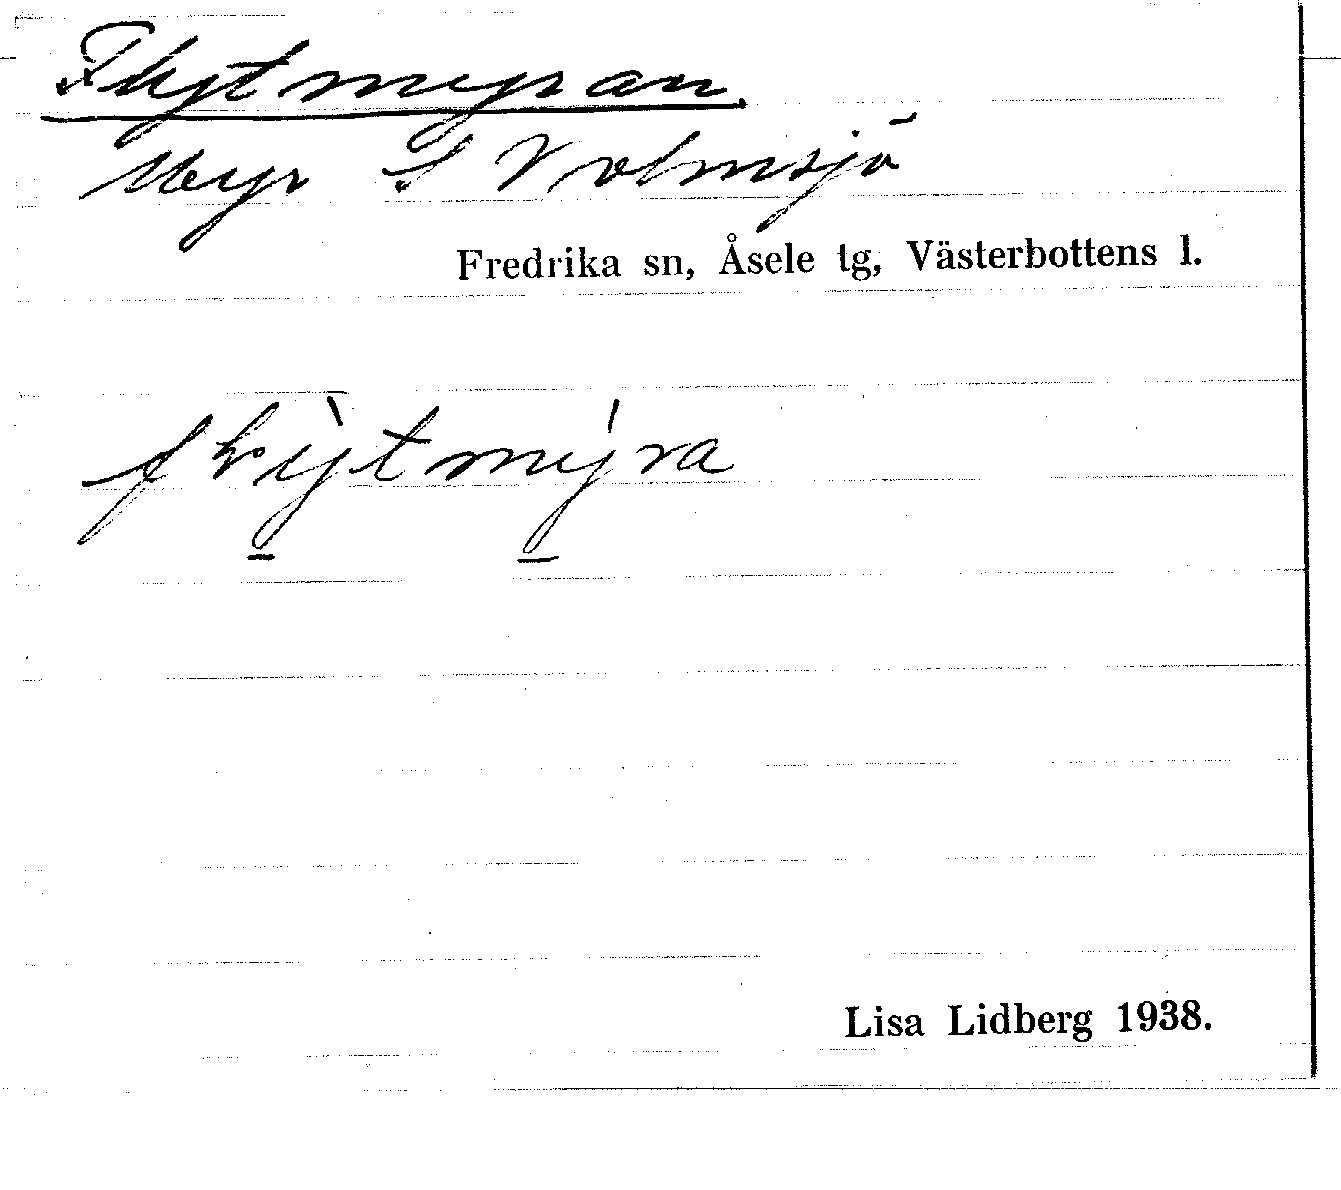 Flytmyran
Myr S Volmsjö
Fredrika sn, Åsele tg, Västerbottens l.
flỳtmýra
Lisa Lidberg 1938.